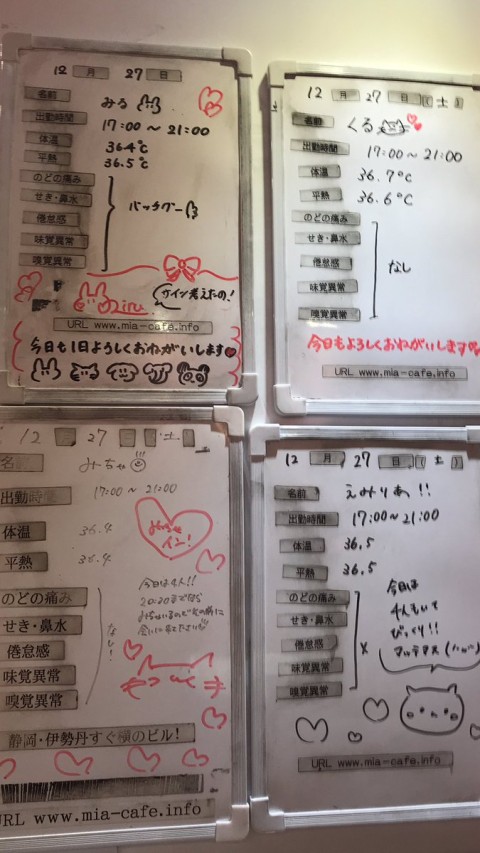 12 月 27 日
名前 みる
出勤時間 17:00〜21:00
体温 36.4℃
平熱 36.5℃
のどの痛み
せき・鼻水
倦怠感
味覚異常
嗅覚異常
バッチグー
サイン考えたの!
URL www.mia-cafe.info
今日も1日よろしくおねがいします
12 月 27 日 (土)
名前 くる
出勤時間 17:00〜21:00
体温 36.7℃
平熱 36.6℃
のどの痛み
せき・鼻水
倦怠感
味覚異常
嗅覚異常
なし
今日もよろしくおねがいします
URL www.mia-cafe.info
12 27 土
名 みーちゃ
出勤時間 17:00〜21:00
体温 36.4
平熱 36.4
イン!
のどの痛み
せき・鼻水
倦怠感
味覚異常
嗅覚異常
なし!
今日は4人!!
静岡・伊勢丹すぐ横のビル!
URL www.mia-cafe.info
12 月 27 日 (土)
名前 えみりあ!!
出勤時間 17:00〜21:00
体温 36.5
平熱 36.5
のどの痛み
せき・鼻水
倦怠感
味覚異常
嗅覚異常
×
今日は
4人もいて
びっくり!!
URL www.mia-cafe.info